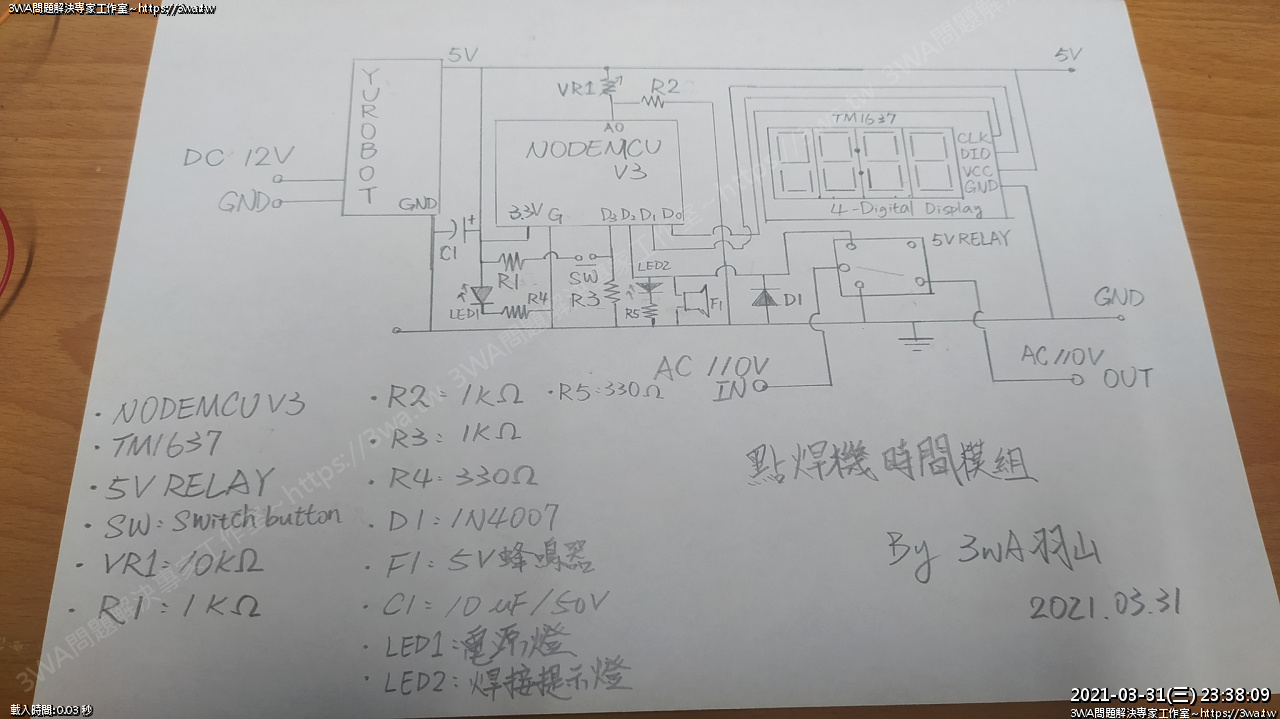 3WA問題解決專家工作室~https://3wa.tw
5V
5V
YUROBOT
VR1
R2
A0
NODEMCU
V3
TM1637
CLK
DIO
VCC
GND
DC 12V
GND
GND
3.3V G D3 D2 D1 D0
4-Digital Display
C1
+
R1
SW
LED2
5V RELAY
LED1
R4
R3
R5
F1
D1
GND
AC 110V
IN
AC 110V
OUT
· NODEMCU V3
· TM1637
· 5V RELAY
· SW: Switch button
· VR1: 10kΩ
· R1: 1KΩ
· R2: 1KΩ · R5: 330Ω
· R3: 1KΩ
· R4: 330Ω
· D1: 1N4007
· F1: 5V 蜂鳴器
· C1: 10 uF/50V
· LED1: 電源燈
· LED2: 焊接提示燈
點焊機時間模組
By 3WA羽山
2021.03.31
載入時間:0.03 秒
2021-03-31(三) 23:38:09
3WA問題解決專家工作室~https://3wa.tw